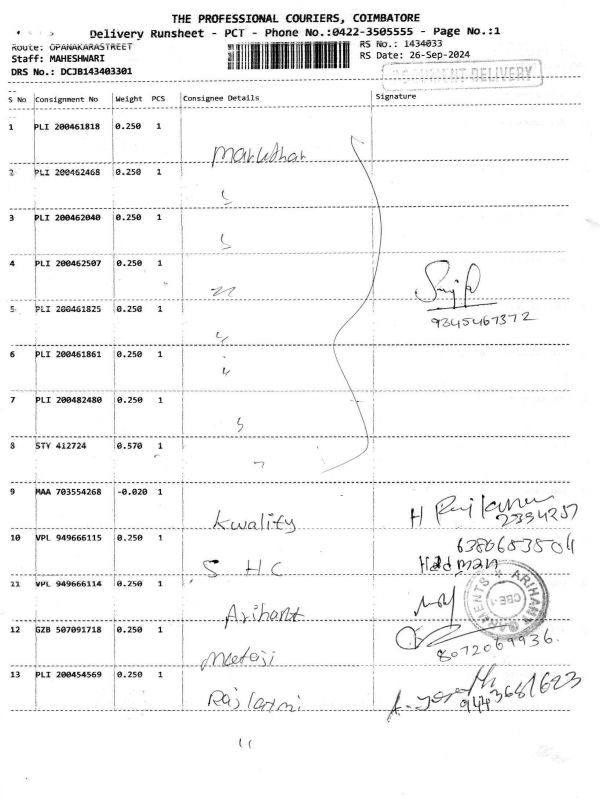 THE PROFESSIONAL COURIERS, COIMBATORE
Delivery Runsheet - PCT - Phone No.:0422-3505555 - Page No.:1
Route: OPANAKARASTREET
RS No.: 1434033
Staff: MAHESHWARI
RS Date: 26-Sep-2024
DRS No.: DCJB143403301
DELIVERY
S No Consignment No Weight PCS Consignee Details Signature
1 PLI 200461818 0.250 1
Maruthar
2 PLI 200462468 0.250 1
3 PLI 200462040 0.250 1
4 PLI 200462507 0.250 1
9345467372
5 PLI 200461825 0.250 1
6 PLI 200461861 0.250 1
7 PLI 200482480 0.250 1
8 STY 412724 0.570 1
9 MAA 703554268 -0.020 1
Kwality H
2394257
10 VPL 949666115 0.250 1
S H C
11 VPL 949666114 0.250 1
Arihant
ARIHANT GARMENTS
CBE-1
12 GZB 507091718 0.250 1
8072069936
Mataji
13 PLI 200454569 0.250 1
Rajlaxmi
9443681623